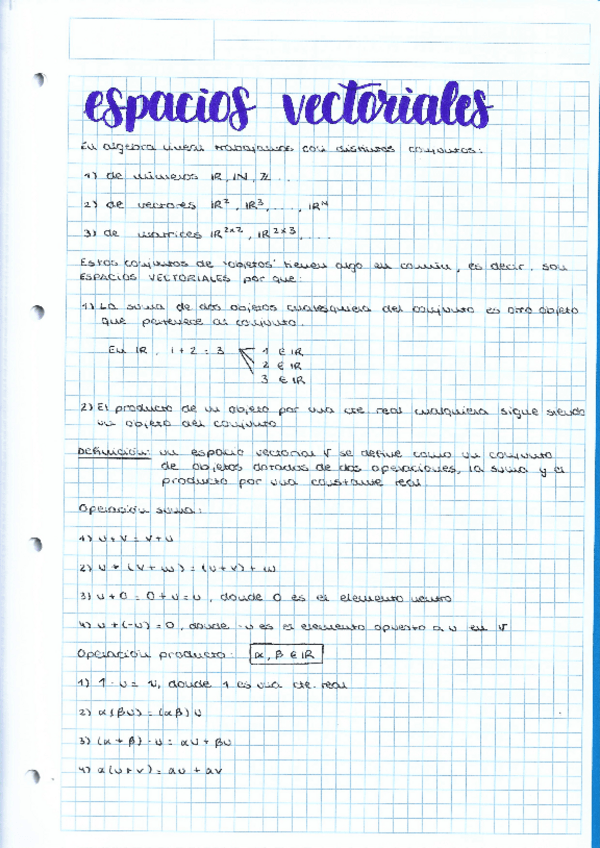 espacios vectoriales
En álgebra lineal trabajamos con distintos conjuntos:
1) de números IR, IN, Z...
2) de vectores IR², IR³, ..., IRᴺ
3) de matrices IR²ˣ², IR²ˣ³, ...
Estos conjuntos de 'objetos' tienen algo en común, es decir, son
ESPACIOS VECTORIALES por que:
1) La suma de dos objetos cualesquiera del conjunto es otro objeto
que pertenece al conjunto.
En IR, 1 + 2 = 3 1 ∈ IR
2 ∈ IR
3 ∈ IR
2) El producto de un objeto por una cte. real cualquiera sigue siendo
un objeto del conjunto
Definición: un espacio vectorial V se define como un conjunto
de objetos dotados de dos operaciones, la suma y el
producto por una constante real
Operación suma:
1) u + v = v + u
2) u + (v + w) = (u + v) + w
3) u + 0 = 0 + u = u, donde 0 es el elemento neutro
4) u + (-u) = 0, donde -u es el elemento opuesto a u en V
Operación producto: α, β ∈ IR
1) 1 · u = u, donde 1 es una cte. real
2) α(βu) = (αβ)u
3) (α + β) · u = αu + βu
4) α(u + v) = αu + αv